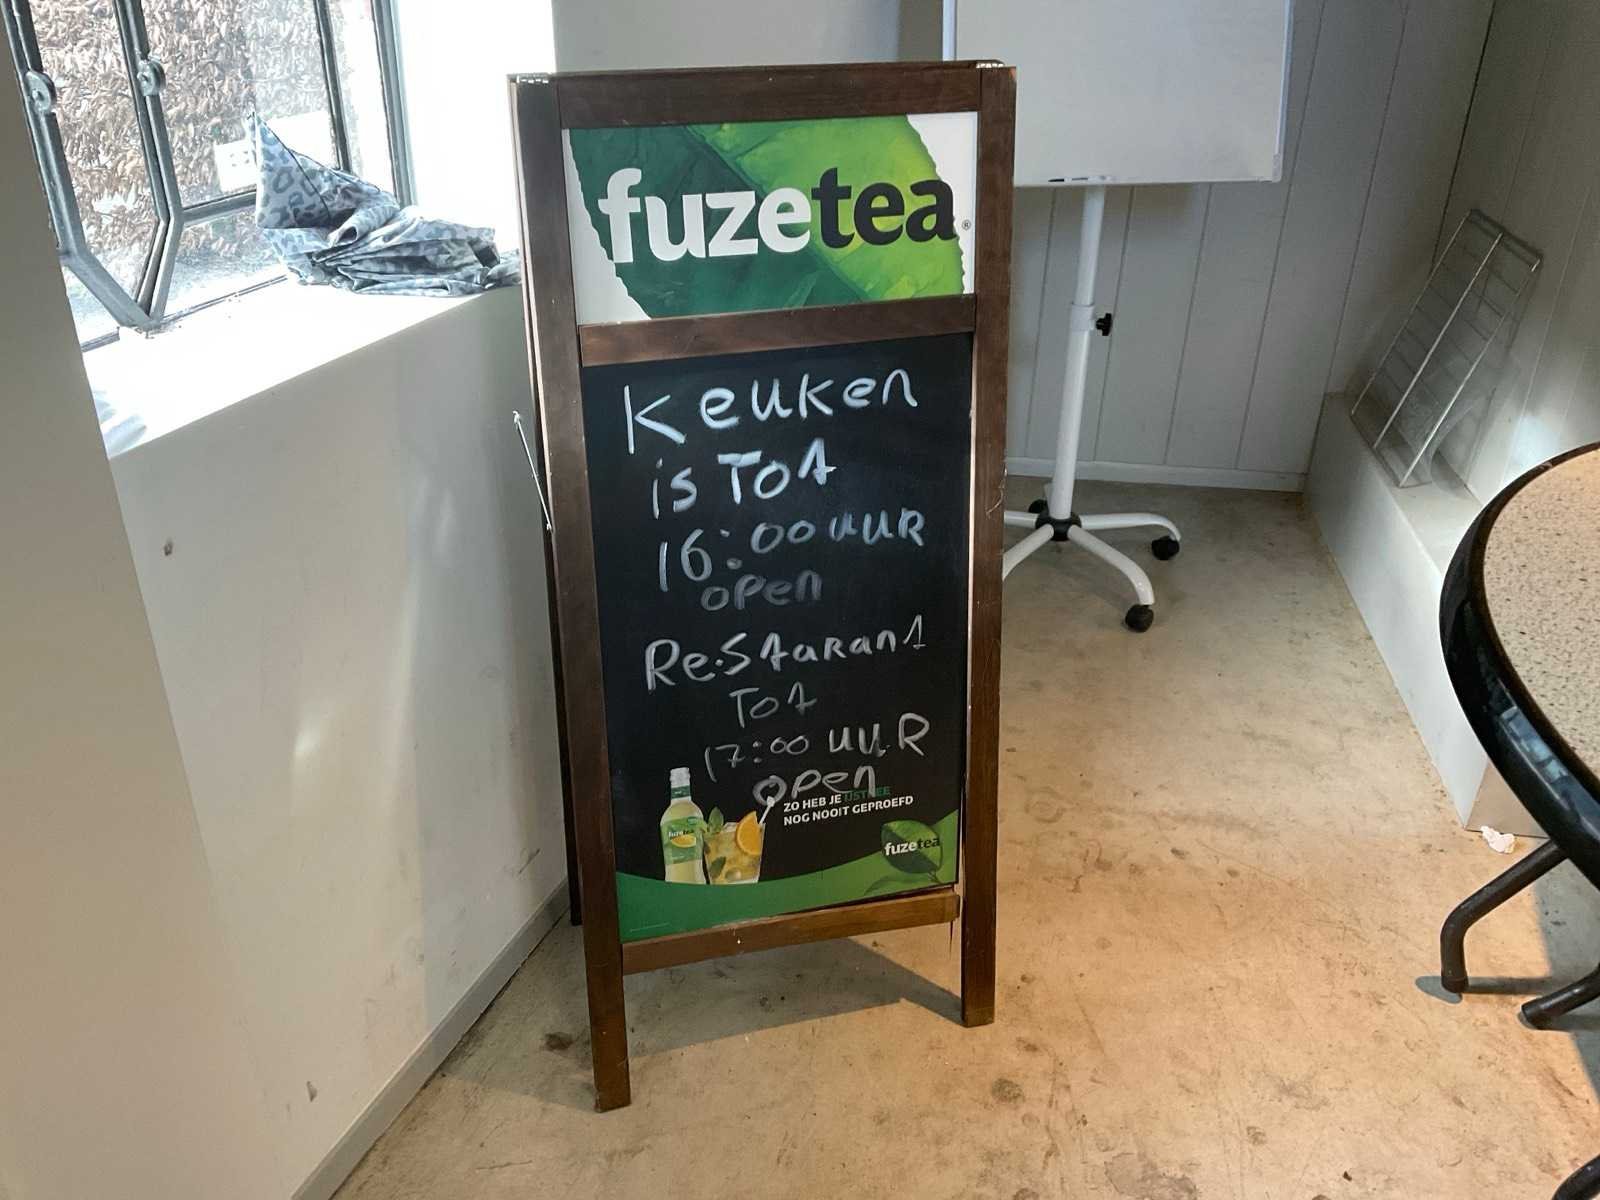 fuzetea
Keuken
is Tot
16:00 uuR
open
Restaurant
Tot
17:00 uuR
open
ZO HEB JE IJSTHEE
NOG NOOIT GEPROEFD
fuzetea
fuzetea